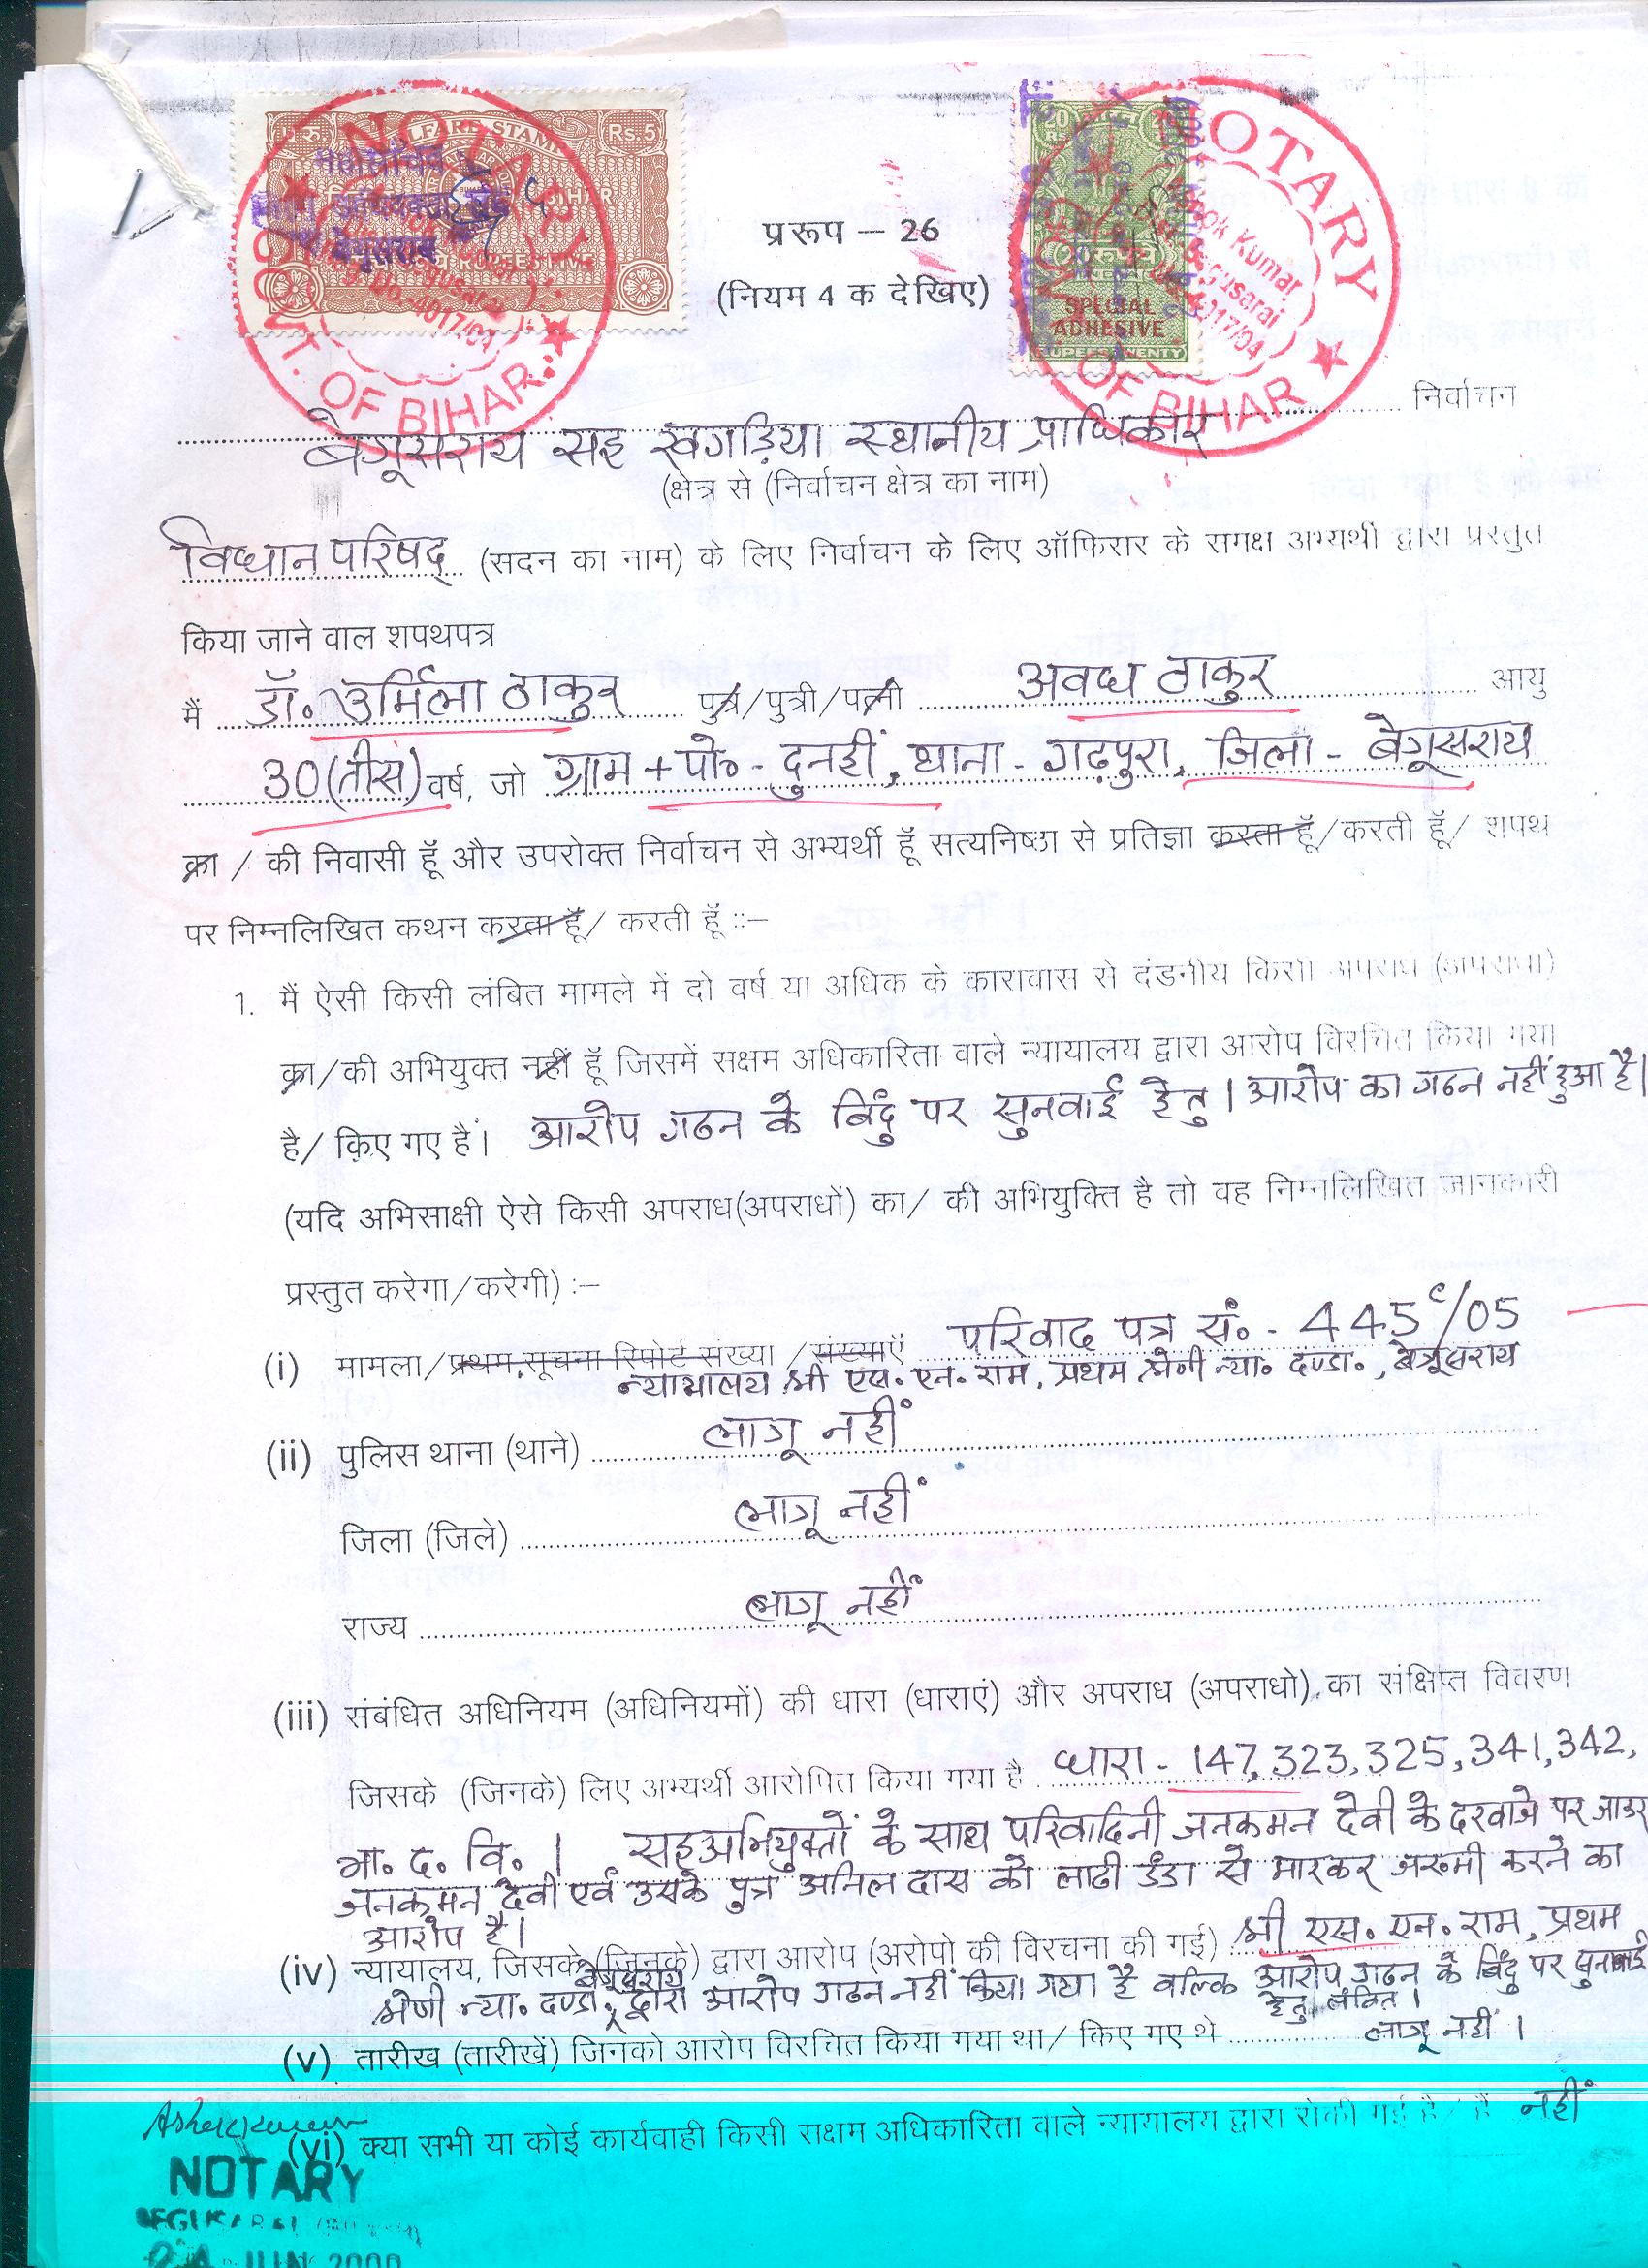 WELFARE STAMP
Rs.5
BIHAR
महासचिव
बेगूसराय
NOTARY
GOVT. OF BIHAR
Begusarai
Reg. No.-4017/04
20
SPECIAL
ADHESIVE
RUPEES TWENTY
NOTARY
OF BIHAR
Ashok Kumar
Begusarai
4017/04
प्ररूप – 26
(नियम 4 क देखिए)
बेगूसराय सह खगड़िया स्थानीय प्राधिकार निर्वाचन
(क्षेत्र से (निर्वाचन क्षेत्र का नाम)
विधान परिषद् (सदन का नाम) के लिए निर्वाचन के लिए ऑफिरार के समक्ष अभ्यर्थी द्वारा प्रस्तुत
किया जाने वाल शपथपत्र
मैं डॉ. उर्मिला ठाकुर पुत्र/पुत्री/पत्नी अवध ठाकुर आयु
30(तीस) वर्ष, जो ग्राम + पो० - दुनही, थाना - गढ़पुरा, जिला - बेगूसराय
का / की निवासी हूँ और उपरोक्त निर्वाचन से अभ्यर्थी हूँ सत्यनिष्ठा से प्रतिज्ञा करता हूँ/करती हूँ/ शपथ
पर निम्नलिखित कथन करता हूँ/ करती हूँ ::–
1. मैं ऐसी किसी लंबित मामले में दो वर्ष या अधिक के कारावास से दंडनीय किसी अपराध (अपराधों)
का/की अभियुक्त नहीं हूँ जिसमें सक्षम अधिकारिता वाले न्यायालय द्वारा आरोप विरचित किया गया
है/ किए गए है। आरोप गठन के बिंदु पर सुनवाई हेतु। आरोप का गठन नहीं हुआ है।
(यदि अभिसाक्षी ऐसे किसी अपराध(अपराधों) का/ की अभियुक्ति है तो वह निम्नलिखित जानकारी
प्रस्तुत करेगा/करेगी) :–
(i) मामला/प्रथम सूचना रिपोर्ट संख्या /संख्याएँ परिवाद पत्र सं० - 445 c/05
न्यायालय श्री एस. एन. राम, प्रथम श्रेणी न्या. दण्डा., बेगूसराय
(ii) पुलिस थाना (थाने) लागू नहीं
जिला (जिले) लागू नहीं
राज्य लागू नहीं
(iii) संबंधित अधिनियम (अधिनियमों) की धारा (धाराएं) और अपराध (अपराधो) का संक्षिप्त विवरण
जिसके (जिनके) लिए अभ्यर्थी आरोपित किया गया है धारा - 147, 323, 325, 341, 342,
भा. द. वि. । सहअभियुक्तों के साथ परिवादिनी जनकमन देवी के दरवाजे पर जाकर
जनकमन देवी एवं उसके पुत्र अनिल दास को लाठी डंडा से मारकर जख्मी करने का
आरोप है।
(iv) न्यायालय, जिसके (जिनके) द्वारा आरोप (अरोपो की विरचना की गई) श्री एस. एन. राम, प्रथम
श्रेणी न्या. दण्डा., बेगूसराय द्वारा आरोप गठन नहीं किया गया है बल्कि आरोप गठन के बिंदु पर सुनवाई
हेतु लंबित।
(v) तारीख (तारीखें) जिनको आरोप विरचित किया गया था/ किए गए थे लागू नहीं।
(vi) क्या सभी या कोई कार्यवाही किसी सक्षम अधिकारिता वाले न्यागालय द्वारा रोकी गई है/ हैं नहीं
NOTARY
BEGUSARAI
24 JUN 2009